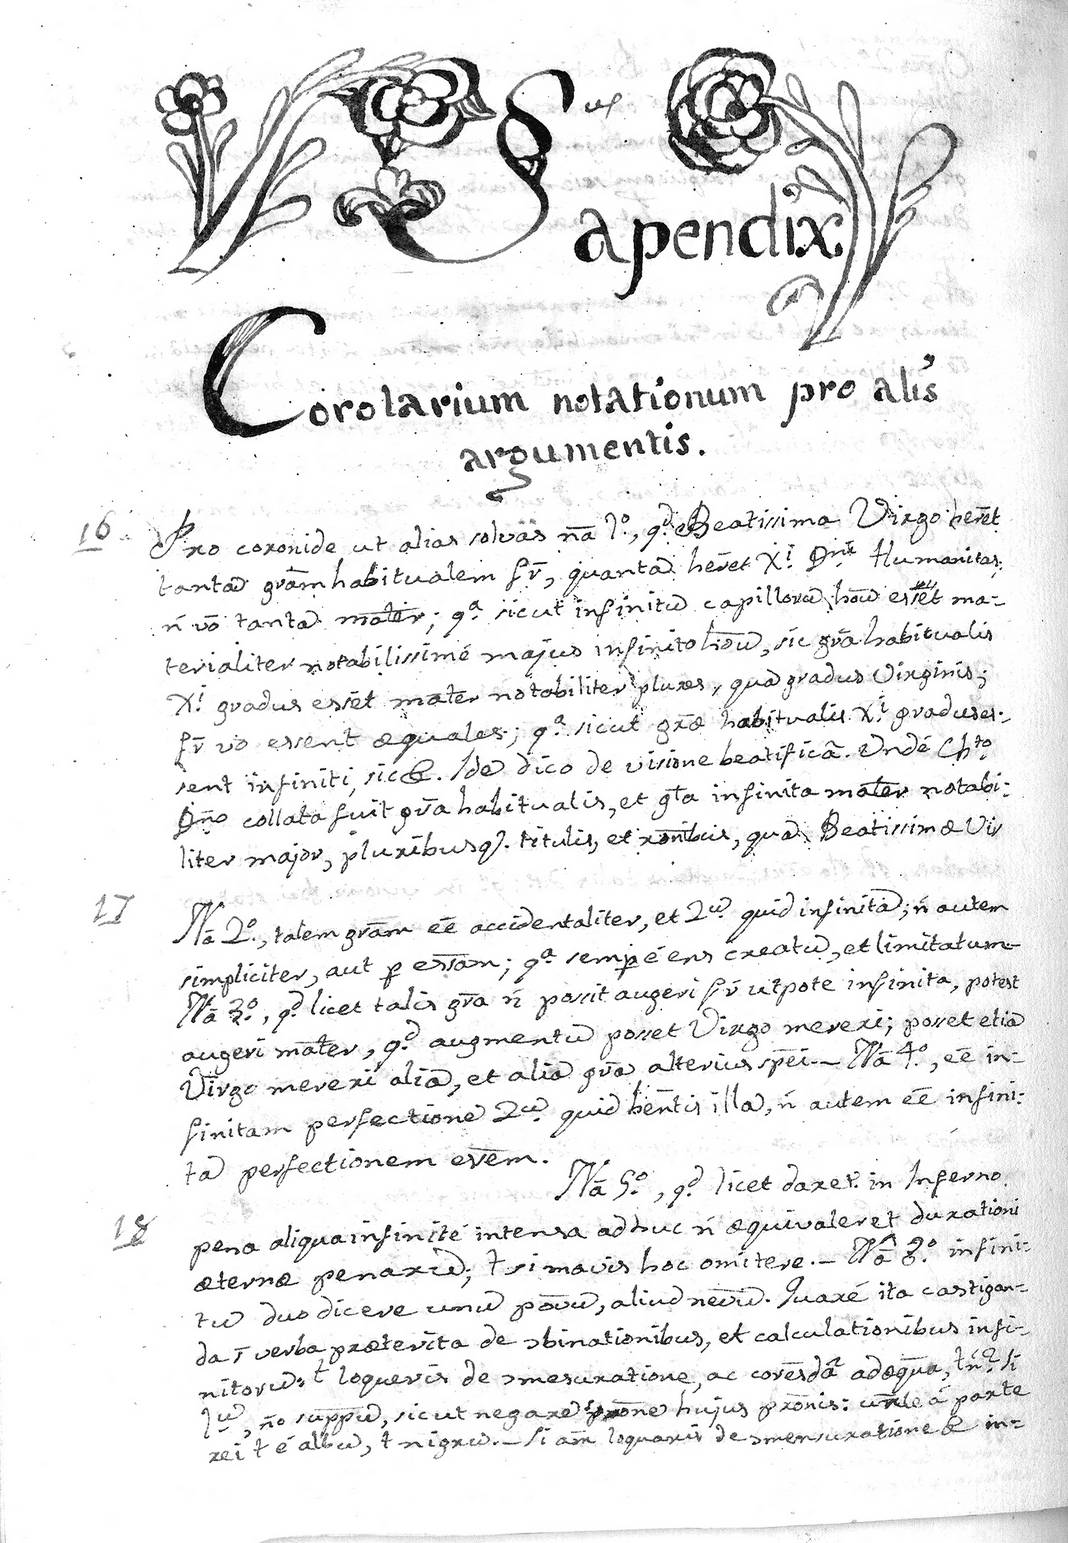 § us
apendix.
Corolarium notationum pro aliis
argumentis.
16 Pro coronide ut alias solvas nā 1º, qᵈ Beatissima Virgo herēt
tantā grām habitualem fr̄, quantā herēt Xⁱ Dnⁱ Humanitas;
n̄ vō tantā mater̄; qᵃ sicut infinitū capillorū hoū essēt ma-
terialiter notabilissimé majus infinito hoū, sic grā habitualis
Xⁱ gradus essēt mater̄ notabiliter plures, quā gradus Virginis;
fr̄ vō essent æquales; qᵃ sicut græ habitualis Xⁱ gradus es-
sent infiniti, sic &. Idē dico de visione beatificā. Undé Chᵗᵒ
Dnō collata fuit grā habitualis, et glā infinita mater̄ notabi-
liter major, pluribusq. titulis, et rōnibus, quā Beatissimæ Vir
17 Nā 2º., talem grām eē accidentaliter, et 2ū quid infinitā; n̄ autem
simpliciter, aut p̱ essām; qᵃ semp̱ é ens creatū, et limitatum-
Nā 3º., qᵈ licet talis grā n̄ possit augeri fr̄ utpote infinita, potest
augeri māter, qᵈ augmentū posset Virgo mereri; posset etiā
Virgo mereri aliā, et aliā grā alterius spēi.- Nā 4º, eē in-
finitam perfectione 2ū quid hēntis illā, n̄ autem eē infini-
tā perfectionem evēm.
Nā 5º., qᵈ licet daret. in Inferno
18 pena aliqua infinité intensa adhuc n̄ æquivaleret durationi
æternæ penarū; t̄ si mavis hoc omitere.- Nā infini-
tū duo dicere unū povū, aliud nevū. Quaré ita castigan-
da r̄ verba præterita de ɔbinationibus, et calculationibus infi-
nitorū: t̄ loqueris de ɔmesuratione, ac
, nō suppū, sicut negare hujus prōnis: á parte
rei t̄ é albū, t̄ nigrū.- Si aūt loquaris de ɔmensuratione in-